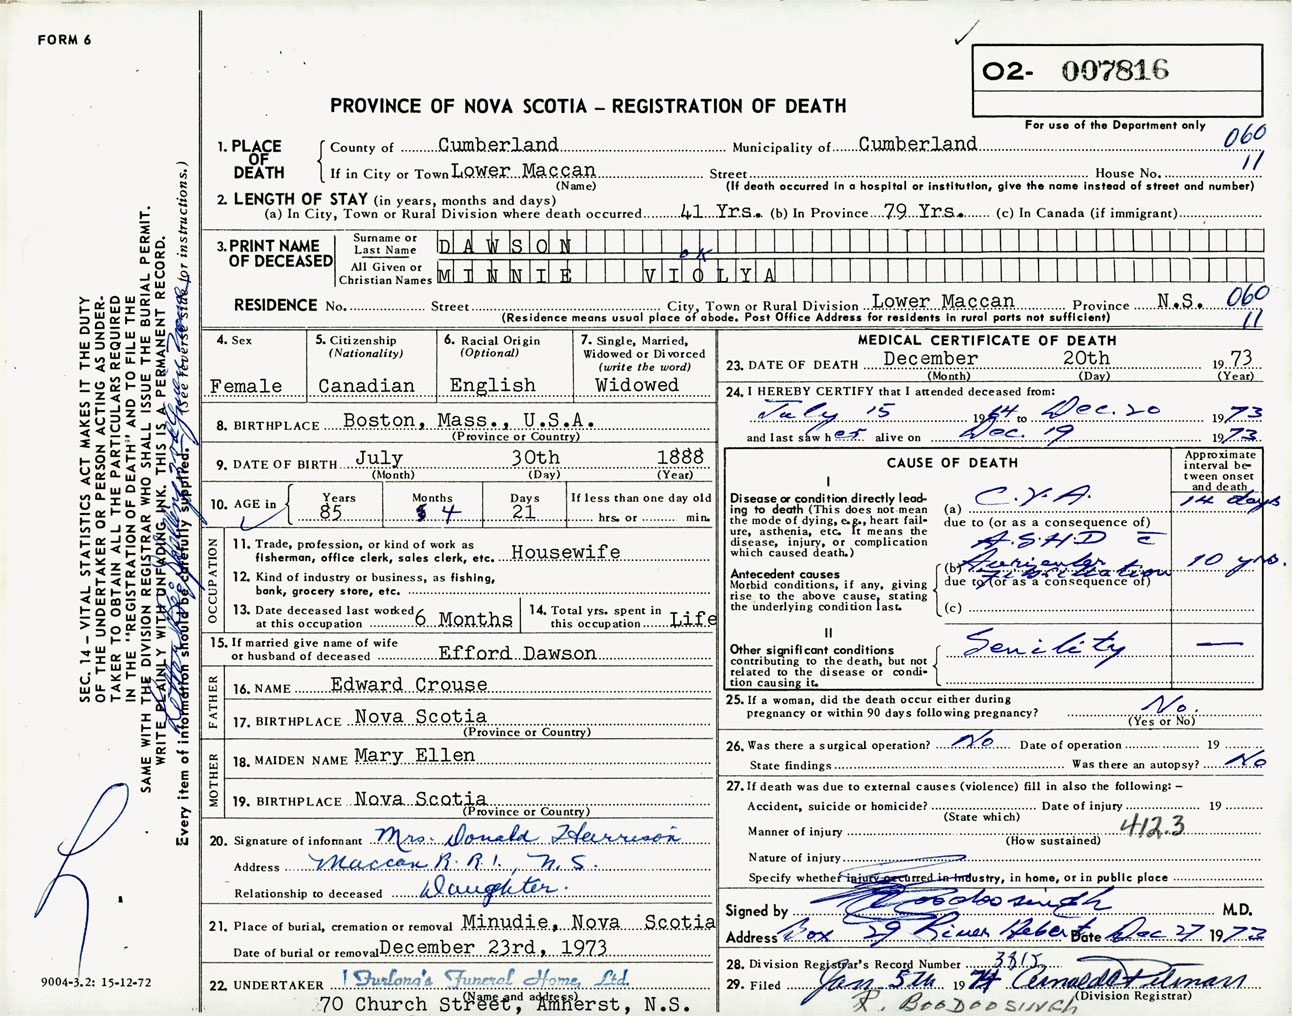 FORM 6
02- 007816
PROVINCE OF NOVA SCOTIA – REGISTRATION OF DEATH
For use of the Department only
060
11
1. PLACE OF DEATH
County of Cumberland Municipality of Cumberland
If in City or Town Lower Maccan Street House No.
(Name) (If death occurred in a hospital or institution, give the name instead of street and number)
2. LENGTH OF STAY (in years, months and days)
(a) In City, Town or Rural Division where death occurred 41 Yrs. (b) In Province 79 Yrs. (c) In Canada (if immigrant)
3. PRINT NAME OF DECEASED
Surname or Last Name DAWSON
OK
All Given or Christian Names MINNIE VIOLYA
RESIDENCE No. Street City, Town or Rural Division Lower Maccan Province N.S. 060
11
(Residence means usual place of abode. Post Office Address for residents in rural parts not sufficient)
4. Sex
Female
5. Citizenship
(Nationality)
Canadian
6. Racial Origin
(Optional)
English
7. Single, Married,
Widowed or Divorced
(write the word)
Widowed
8. BIRTHPLACE Boston, Mass., U.S.A.
(Province or Country)
9. DATE OF BIRTH July 30th 1888
(Month) (Day) (Year)
10. AGE in
Years Months Days If less than one day old
85 4 21 hrs. or min.
OCCUPATION
11. Trade, profession, or kind of work as
fisherman, office clerk, sales clerk, etc. Housewife
12. Kind of industry or business, as fishing,
bank, grocery store, etc.
13. Date deceased last worked
at this occupation 6 Months
14. Total yrs. spent in
this occupation Life
15. If married give name of wife
or husband of deceased Efford Dawson
FATHER
16. NAME Edward Crouse
17. BIRTHPLACE Nova Scotia
(Province or Country)
MOTHER
18. MAIDEN NAME Mary Ellen
19. BIRTHPLACE Nova Scotia
(Province or Country)
20. Signature of informant Mrs. Donald Harrison
Address Maccan R.R.1, N.S.
Relationship to deceased Daughter.
21. Place of burial, cremation or removal Minudie, Nova Scotia
Date of burial or removal December 23rd, 1973
22. UNDERTAKER Furlong's Funeral Home, Ltd.
(Name and address)
70 Church Street, Amherst, N.S.
MEDICAL CERTIFICATE OF DEATH
23. DATE OF DEATH December 20th 1973
(Month) (Day) (Year)
24. I HEREBY CERTIFY that I attended deceased from:
July 15 1964 to Dec. 20 1973
and last saw her alive on Dec. 19 1973
CAUSE OF DEATH
Approximate
interval be-
tween onset
and death
I
Disease or condition directly lead-
ing to death (This does not mean
the mode of dying, e.g., heart fail-
ure, asthenia, etc. It means the
disease, injury, or complication
which caused death.)
(a) C.V.A. 14 days
due to (or as a consequence of)
A.S.H.D c̄
Antecedent causes
Morbid conditions, if any, giving
rise to the above cause, stating
the underlying condition last.
(b) Auricular Fibrillation 10 yrs.
due to (or as a consequence of)
(c)
II
Other significant conditions
contributing to the death, but not
related to the disease or condi-
tion causing it.
Senility —
25. If a woman, did the death occur either during
pregnancy or within 90 days following pregnancy? No.
(Yes or No)
26. Was there a surgical operation? No Date of operation 19
State findings Was there an autopsy? No
27. If death was due to external causes (violence) fill in also the following: –
Accident, suicide or homicide? Date of injury 19
(State which)
Manner of injury 412.3
(How sustained)
Nature of injury
Specify whether injury occurred in industry, in home, or in public place
Signed by Boodoosingh M.D.
Address Box 29 River Hebert Date Dec 27 1973
28. Division Registrar's Record Number 3815
29. Filed Jan. 5th 1974
(Division Registrar)
R. BOODOOSINGH
SEC. 14 – VITAL STATISTICS ACT MAKES IT THE DUTY
OF THE UNDERTAKER OR PERSON ACTING AS UNDER-
TAKER TO OBTAIN ALL THE PARTICULARS REQUIRED
IN THE "REGISTRATION OF DEATH" AND TO FILE THE
SAME WITH THE DIVISION REGISTRAR WHO SHALL ISSUE THE BURIAL PERMIT.
WRITE PLAINLY WITH UNFADING INK. THIS IS A PERMANENT RECORD.
Every item of information should be carefully supplied. (See reverse side for instructions.)
9004-3.2: 15-12-72